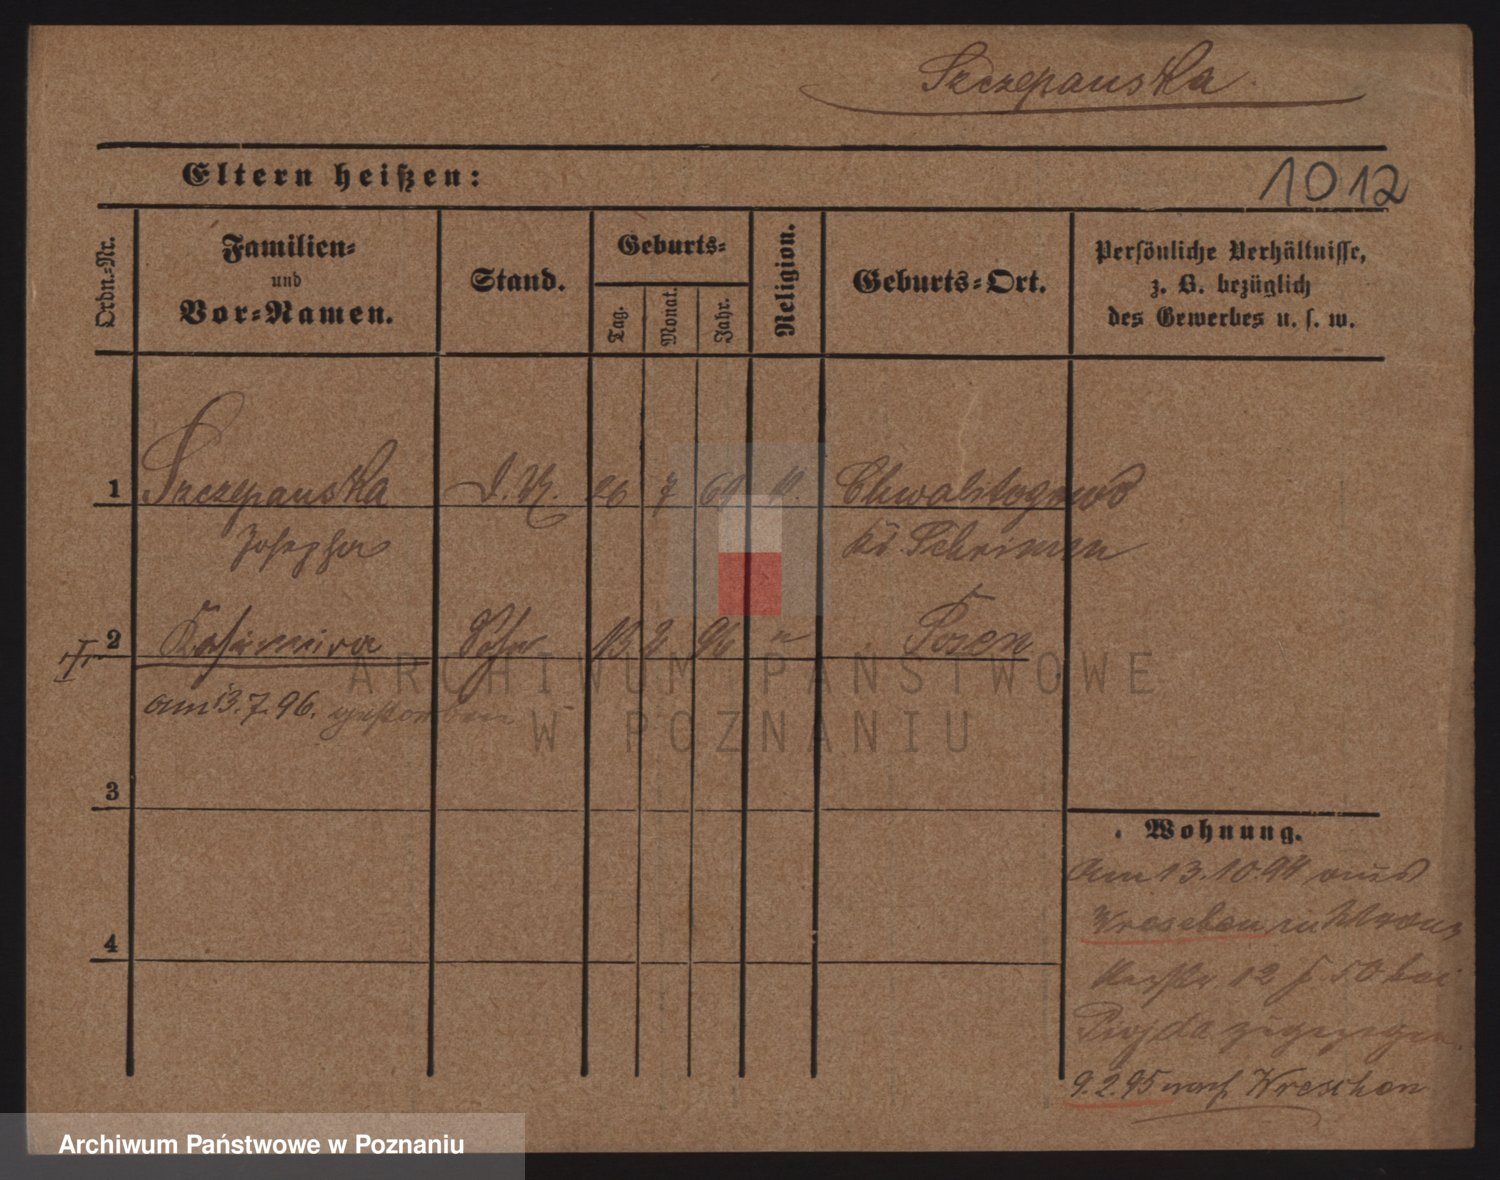 Szczepanska
Eltern heißen:
1012
Ordn.-Nr.
Familien-
und
Vor-Namen.
Stand.
Geburts-
Tag.
Monat.
Jahr.
Religion.
Geburts-Ort.
Persönliche Verhältnisse,
z. B. bezüglich
des Gewerbes u. s. w.
1 Szczepanska 26 7 Chwalstogowo
Josepha Kr. Schrimm
2 Kasimira 2 96 " Posen
am 13.7.96. gestorben
ARCHIWUM PAŃSTWOWE
W POZNANIU
3
Wohnung.
am 13.10.94 aus
Wreschen in
12 bei
4
9.2.95 nach Wreschen
Archiwum Państwowe w Poznaniu